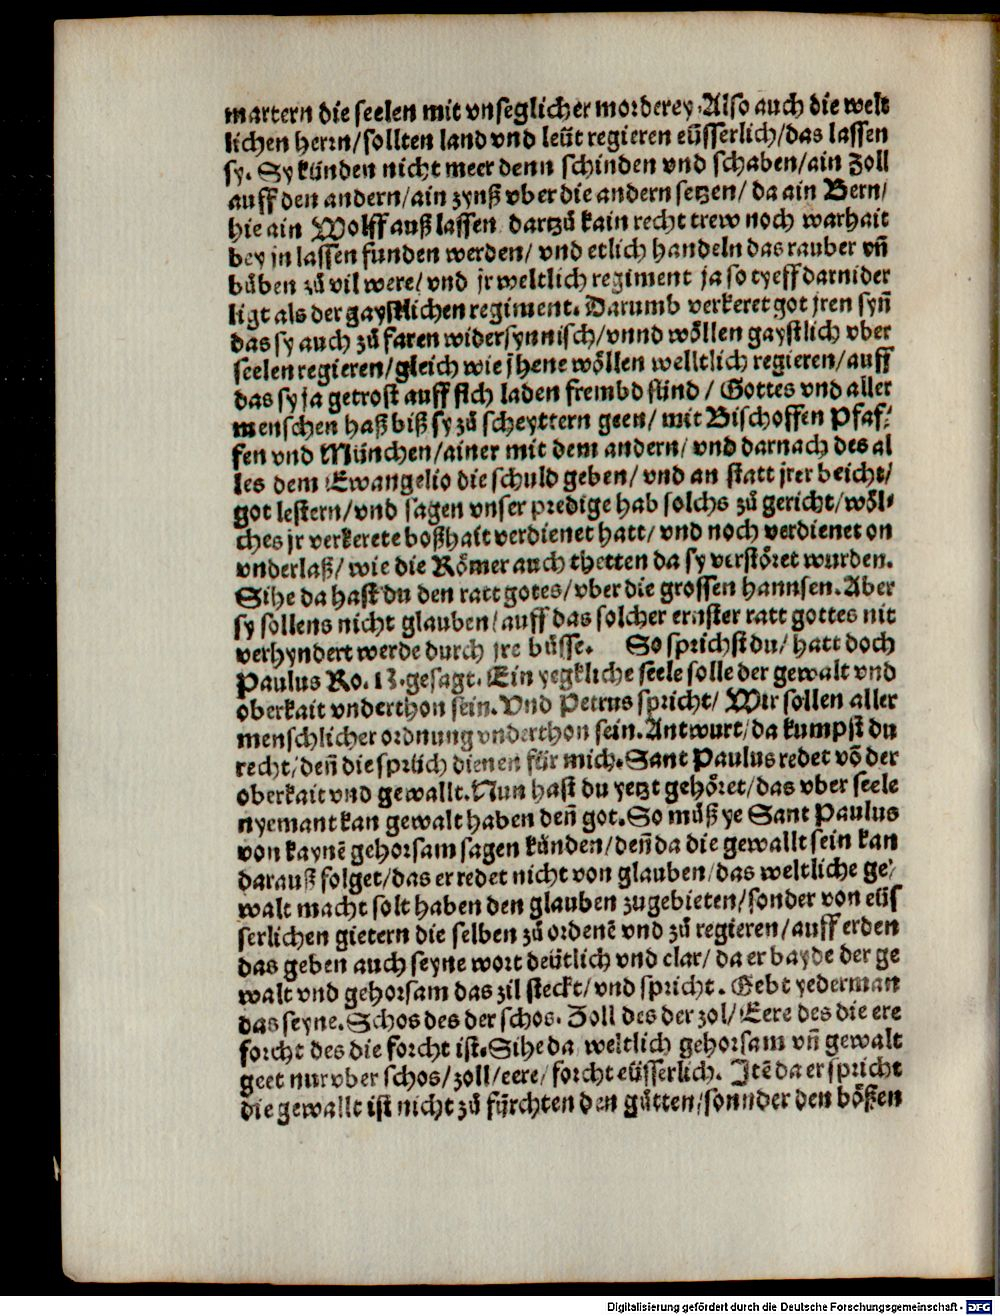 martern die seelen mit vnseglicher morderey. Also auch die welt
lichen herrn/sollten land vnd leüt regieren eüsserlich/das lassen
sy. Sy künden nicht meer denn schinden vnd schaben/ain Zoll
auff den andern/ain zynß vber die andern setzen/ da ain Bern/
hie ain Wolff auß lassen dartzů kain recht trew noch warhait
bey jn lassen funden werden/ vnd etlich handeln das rauber vñ
bůben zů vil were/ vnd jr weltlich regiment ja so tyeff darnider
ligt als der gaystlichen regiment. Darumb verkeret got jren syñ
das sy auch zů faren widersynnisch/vnnd wöllen gaystlich vber
seelen regieren/gleich wie jhene wöllen welltlich regieren/auff
das sy ja getrost auff sich laden frembd sünd/ Gottes vnd aller
menschen haß biß sy zů scheyttern geen/ mit Bischoffen Pfaf⸗
fen vnd München/ainer mit dem andern/ vnd darnach des al
les dem Ewangelio die schuld geben/ vnd an statt jrer beicht/
got lestern/vnd sagen vnser predige hab solchs zů gericht/wöl⸗
ches jr verkerete boßhait verdienet hatt/ vnd noch verdienet on
vnderlaß/ wie die Römer auch thetten da sy verstöret wurden.
Sihe da hast du den ratt gotes/vber die grossen hannsen. Aber
sy sollens nicht glauben/auff das solcher ernster ratt gottes nit
verhyndert werde durch jre bůsse. So sprichst du/ hatt doch
Paulus Ro. 13. gesagt. Ein yegkliche seele solle der gewalt vnd
oberkait vnderthon sein. Vnd Petrus spricht/ Wir sollen aller
menschlicher ordnung vnderthon sein. Antwurt/da kumpst du
recht/deñ die sprüch dienen für mich. Sant Paulus redet võ der
oberkait vnd gewallt. Nun hast du yetzt gehöret/das vber seele
nyemant kan gewalt haben deñ got. So můß ye Sant Paulus
von kaynẽ gehorsam sagen künden/deñ da die gewallt sein kan
darauß folget/das er redet nicht von glauben/das weltliche ge⸗
walt macht solt haben den glauben zugebieten/sonder von eüs
serlichen gietern die selben zů ordenẽ vnd zů regieren/auff erden
das geben auch seyne wort deütlich vnd clar/ da er bayde der ge
walt vnd gehorsam das zil steckt/vnd spricht. Gebt yederman
das seyne. Schos des der schos. Zoll des der zol/Eere des die ere
forcht des die forcht ist. Sihe da weltlich gehorsam vñ gewalt
geet nur vber schos/zoll/eere/forcht eüsserlich. Jtẽ da er spricht
die gewallt ist nicht zů fürchten den gůtten/sonnder den bößen
Digitalisierung gefördert durch die Deutsche Forschungsgemeinschaft - DFG